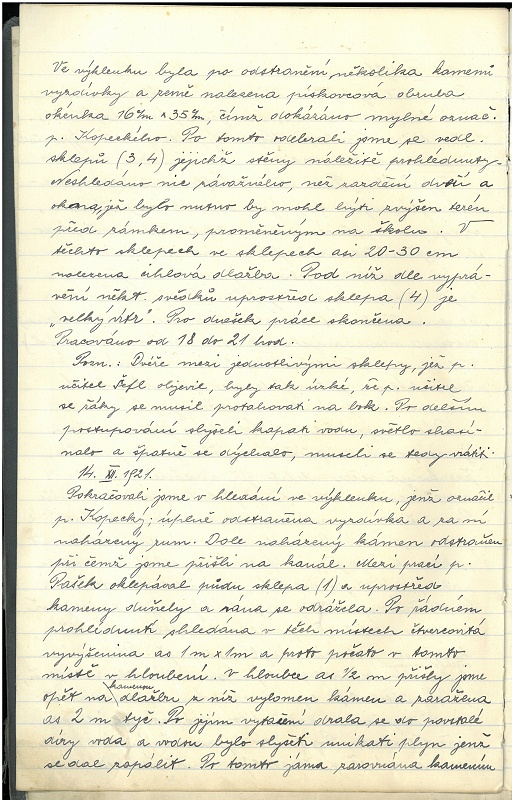 Ve výklenku byla po odstranění několika kamenů
vyzdívky a země nalezena pískovcová obruba
okénka 16 cm x 35 cm, čímž dokázáno mylné označ.
p. Kopeckého. Po tomto odebrali jsme se vedl.
sklepů (3,4) jejichž stěny náležitě prohlédnuty.
Neshledáno nic závažného, než zazdění dveří a
okna, jež bylo nutno by mohl býti zvýšen terén
před zámkem, proměněným na školu. V
těchto sklepech ve sklepech asi 20-30 cm
nalezena cihlová dlažba. Pod níž dle vyprá-
vění někt. svědků uprostřed sklepa (4) je
"velký vítr". Pro dnešek práce skončena.
Pracováno od 18 do 21 hod.
Pozn.: Dvéře mezi jednotlivými sklepy, jež p.
učitel Šefl objevil, byly tak úzké, že p. učitel
se žáky se musil protahovati na bok. Po delším
postupování slyšeli kapati vodu, světlo shasí-
nalo a špatně se dýchalo, museli se tedy vrátit.
14. XI. 1921.
Pokračovali jsme v hledání ve výklenku, jenž označil
p. Kopecký; úplně odstraněna vyzdívka a za ní
naházený rum. Dole naházený kámen odstraněn
při čemž jsme přišli na kanál. Mezi prací p.
Pašek oklepával půdu sklepa (1) a uprostřed
kameny duněly a rána se odrážela. Po řádném
prohlédnutí shledána v těch místech čtvercovitá
vyvýšenina as 1 m x 1 m a proto počato v tomto
místě v hloubení. V hloubce as 1/2 m přišly jsme
opět na kamennou dlažbu z níž vylomen kámen a zaražena
as 2 m tyč. Po jejím vytažení drala se do povstalé
díry voda a vodou bylo slyšeti unikati plyn jenž
se dal zapálit. Po tomto jáma zarovnána kamením